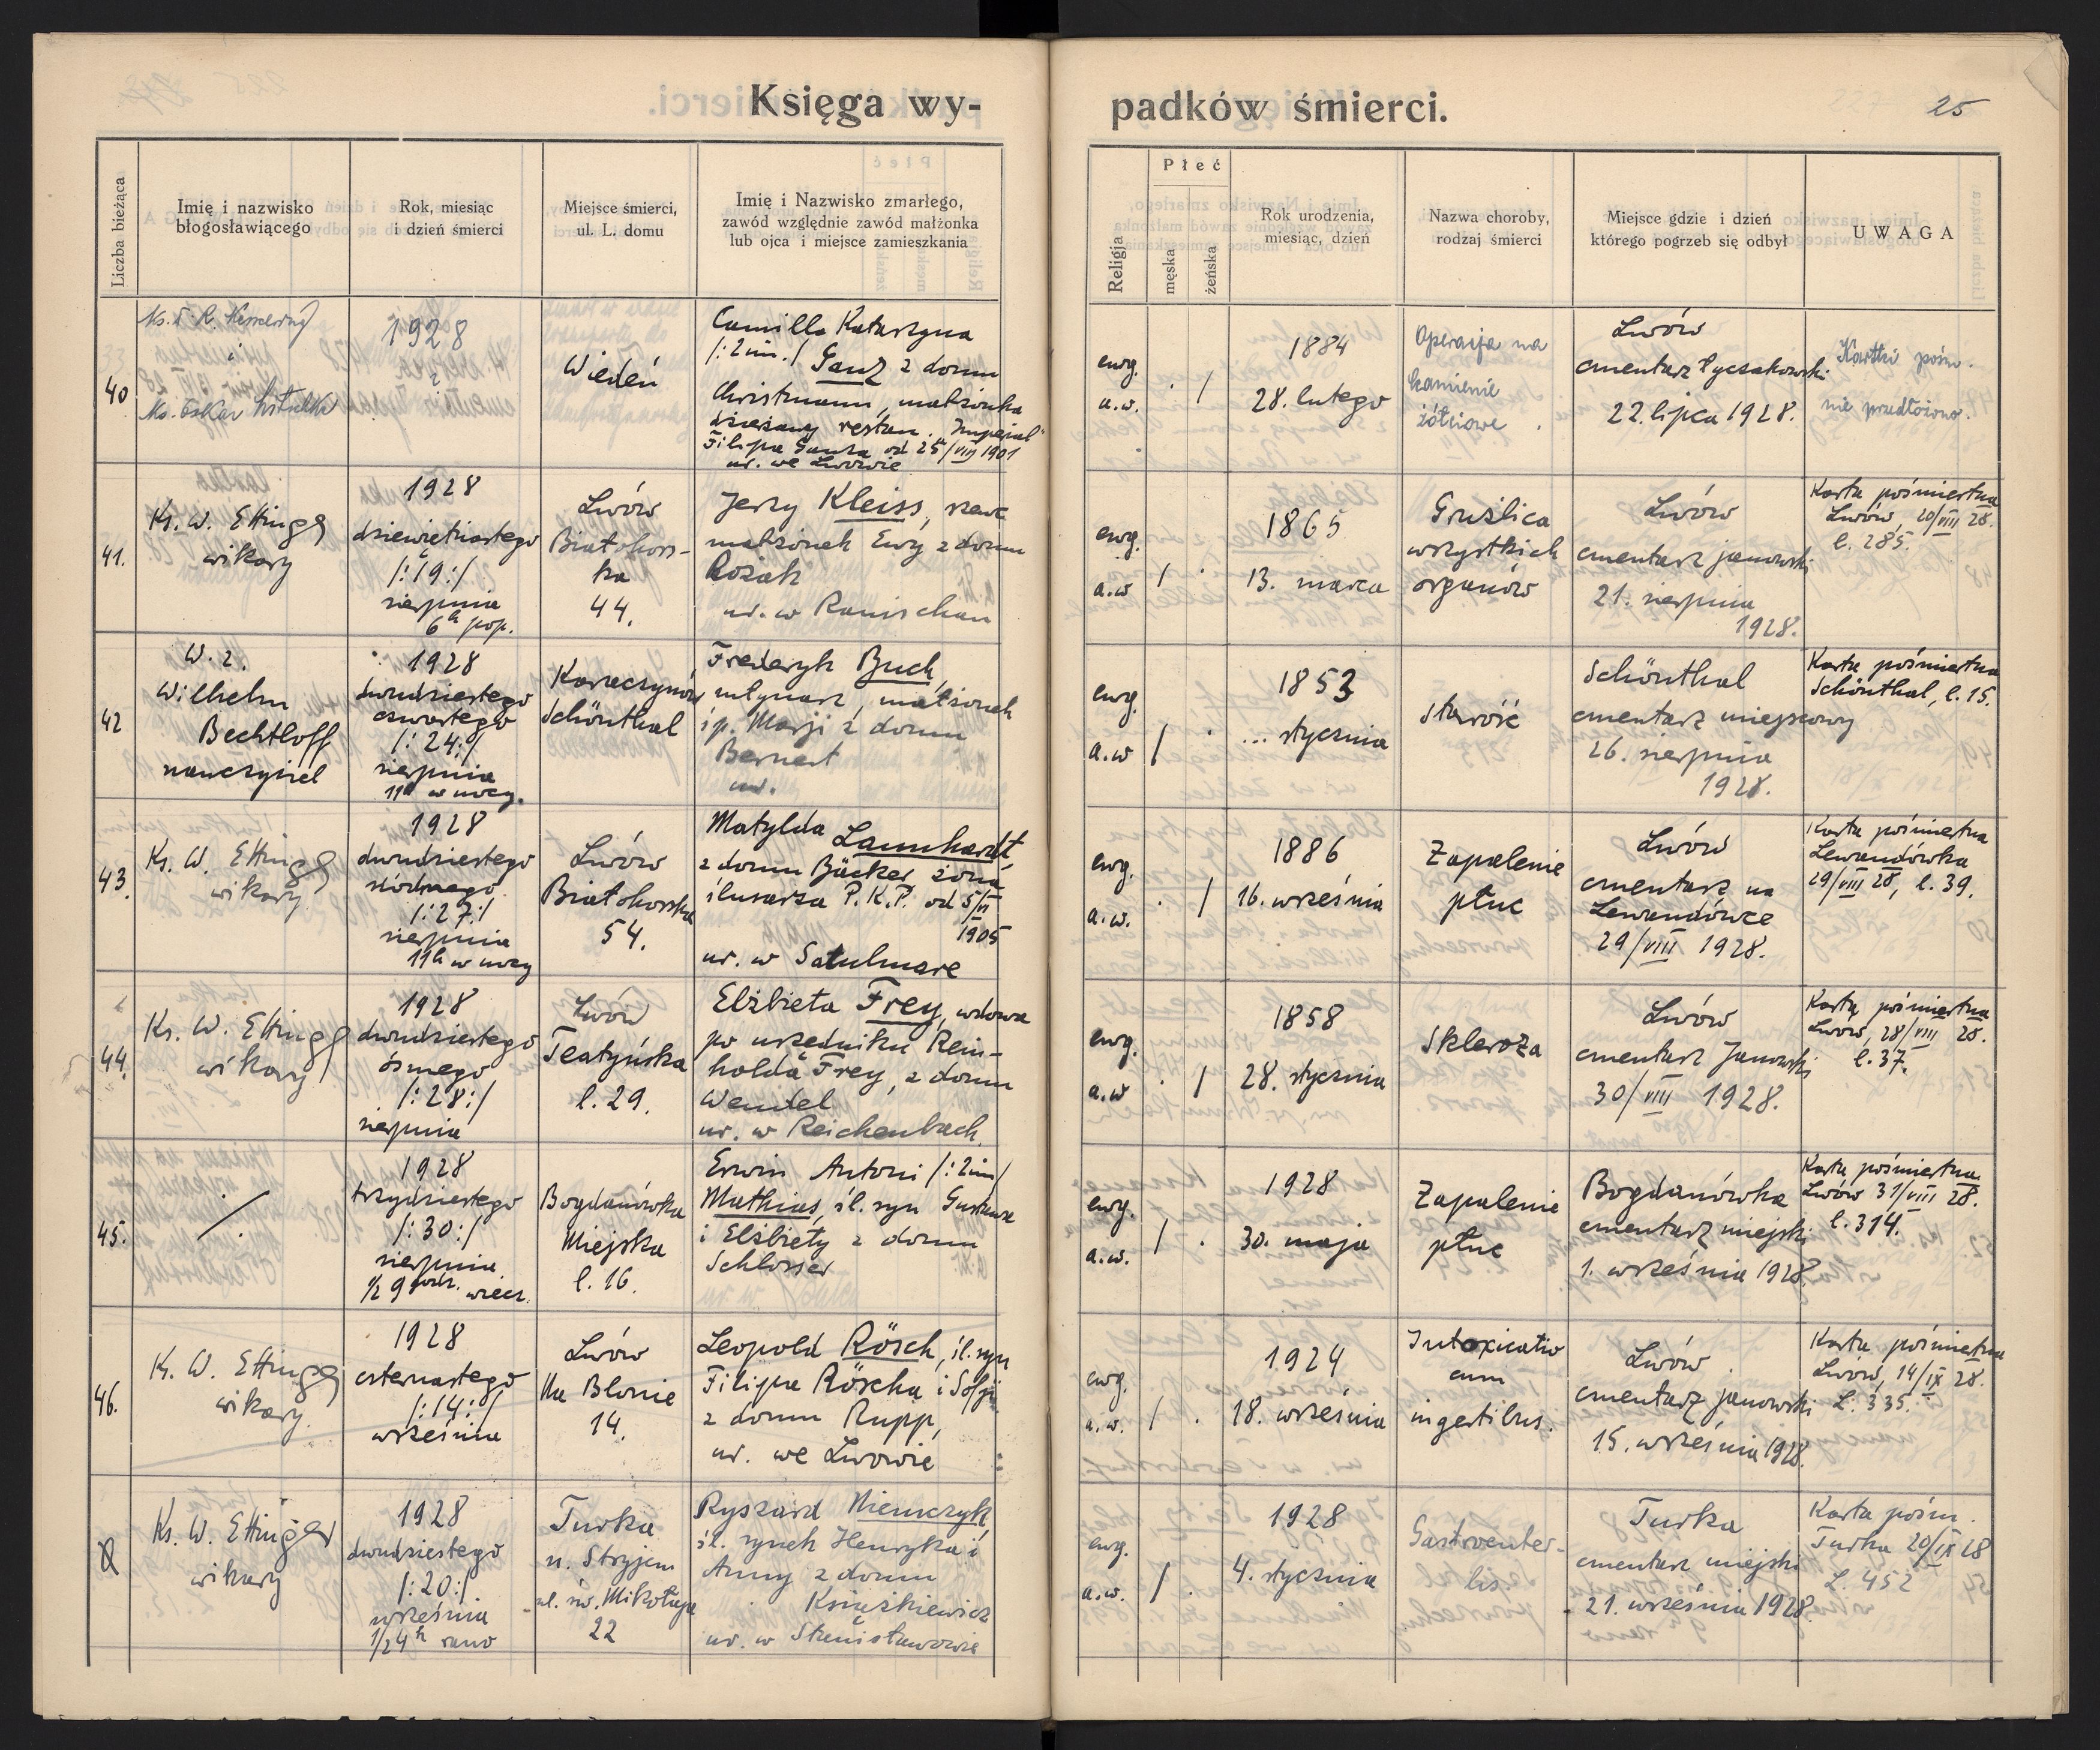 Księga wy-
padków śmierci.
25
Liczba bieżąca
Imię i nazwisko
błogosławiącego
Rok, miesiąc
i dzień śmierci
Miejsce śmierci,
ul. L. domu
Imię i Nazwisko zmarłego,
zawód względnie zawód małżonka
lub ojca i miejsce zamieszkania
Religja
Płeć
męska
żeńska
Rok urodzenia,
miesiąc, dzień
Nazwa choroby,
rodzaj śmierci
Miejsce gdzie i dzień
którego pogrzeb się odbył
UWAGA
40
i
Ks. Oskar
1928
?
Wiedeń
Camilla Katarzyna
/:2 im./ Ganz z domu
Christmann, małżonka
dzierżawy restau. "Imperial"
Filipa Ganza od 25/VIII 1901
ur. we Lwowie
ewg.
a.w.
. /
1884
28. lutego
Operacja na
kamienie
żółciowe.
Lwów
cmentarz Łyczakowski
22. lipca 1928.
Kartki pośm.
nie przedłożono.
41.
Ks. W. Ettinger
wikary
1928
dziewiętnastego
/:19:/
sierpnia
6h pop.
Lwów
Białohors-
ka
44.
Jerzy Kleiss, szewc
małżonek Ewy z domu
Rożak
ur. w Ranischau
ewg.
a.w
/ .
1865
13. marca
Gruźlica
wszystkich
organów
Lwów
cmentarz janowski
21. sierpnia
1928.
Karta pośmiertna
Lwów, 20/VIII 28.
l. 285.
42
W. z.
Wilhelm
Bechtloff
nauczyciel
1928
dwudziestego
czwartego
/:24:/
sierpnia
11h w nocy.
Karaczynów
Schönthal
Frederyk Buch,
młynarz, małżonek
śp. Marji z domu
Bernert
ur.
ewg.
a.w
/ .
1853
... stycznia
starość
Schönthal
cmentarz miejscowy
26. sierpnia
1928.
Karta pośmiertna
Schönthal, l. 15.
43.
Ks. W. Ettinger
wikary
1928
dwudziestego
siódmego
/:27:/
sierpnia
11h w nocy
Lwów
Białohorska
54.
Matylda Launhardt,
z domu Bäcker żona
ślusarza P.K.P. od 5/VI
1905
ur. w Satulmare
ewg.
a.w.
. /
1886
16. września
Zapalenie
płuc
Lwów
cmentarz na
Lewandówce
29/VIII 1928.
Karta pośmiertna
Lewandówka
29/VIII 28, l. 39.
44.
Ks. W. Ettinger
wikary
1928
dwudziestego
ósmego
/:28:/
sierpnia
Lwów
Teatyńska
l. 29.
Elżbieta Frey, wdowa
po urzędniku Rein-
holda Frey, z domu
Wendel
ur. w Reichenbach.
ewg.
a.w
. /
1858
28. stycznia
Skleroza
Lwów
cmentarz Janowski
30/VIII 1928.
Karta pośmiertna
Lwów, 28/VIII 28.
l. 37.
45.
/.
1928
trzydziestego
/:30:/
sierpnia
1/2 9 godz. wiecz.
Bogdanówka
Miejska
l. 16.
Erwin Antoni /:2 im/
Mathias, śl. syn Gustawa
i Elżbiety z domu
Schlosser
ewg.
a.w.
/ .
1928
30. maja
Zapalenie
płuc
Bogdanówka
cmentarz miejski
1. września 1928.
Karta pośmiertna
Lwów 31/VIII 28.
l. 314.
46.
Ks. W. Ettinger
wikary.
1928
czternastego
/:14:/
września
Lwów
Na Błonie
14.
Leopold Rösch, śl. syn
Filipa Röscha i Sofji
z domu Rupp,
ur. we Lwowie
ewg.
a.w.
/ .
1924
18. września
Intoxicatio
cum
ingestibus.
Lwów.
cmentarz janowski
15. września 1928.
Karta pośmiertna
Lwów, 14/IX 28.
L. 335.
Ks. W. Ettinger
wikary
1928
dwudziestego
/:20:/
września
1/2 4h rano
Turka
n. Stryjem
ul. św. Mikołaja
22
Ryszard Niemczyk
śl. synek Henryka i
Anny z domu
Książkiewicz
ur. w Stanisławowie
ewg.
a.w.
/ .
1928
4. stycznia
Gastroenter-
itis.
Turka
cmentarz miejski
21. września 1928.
Karta pośm.
Turka 20/IX 28
L. 452